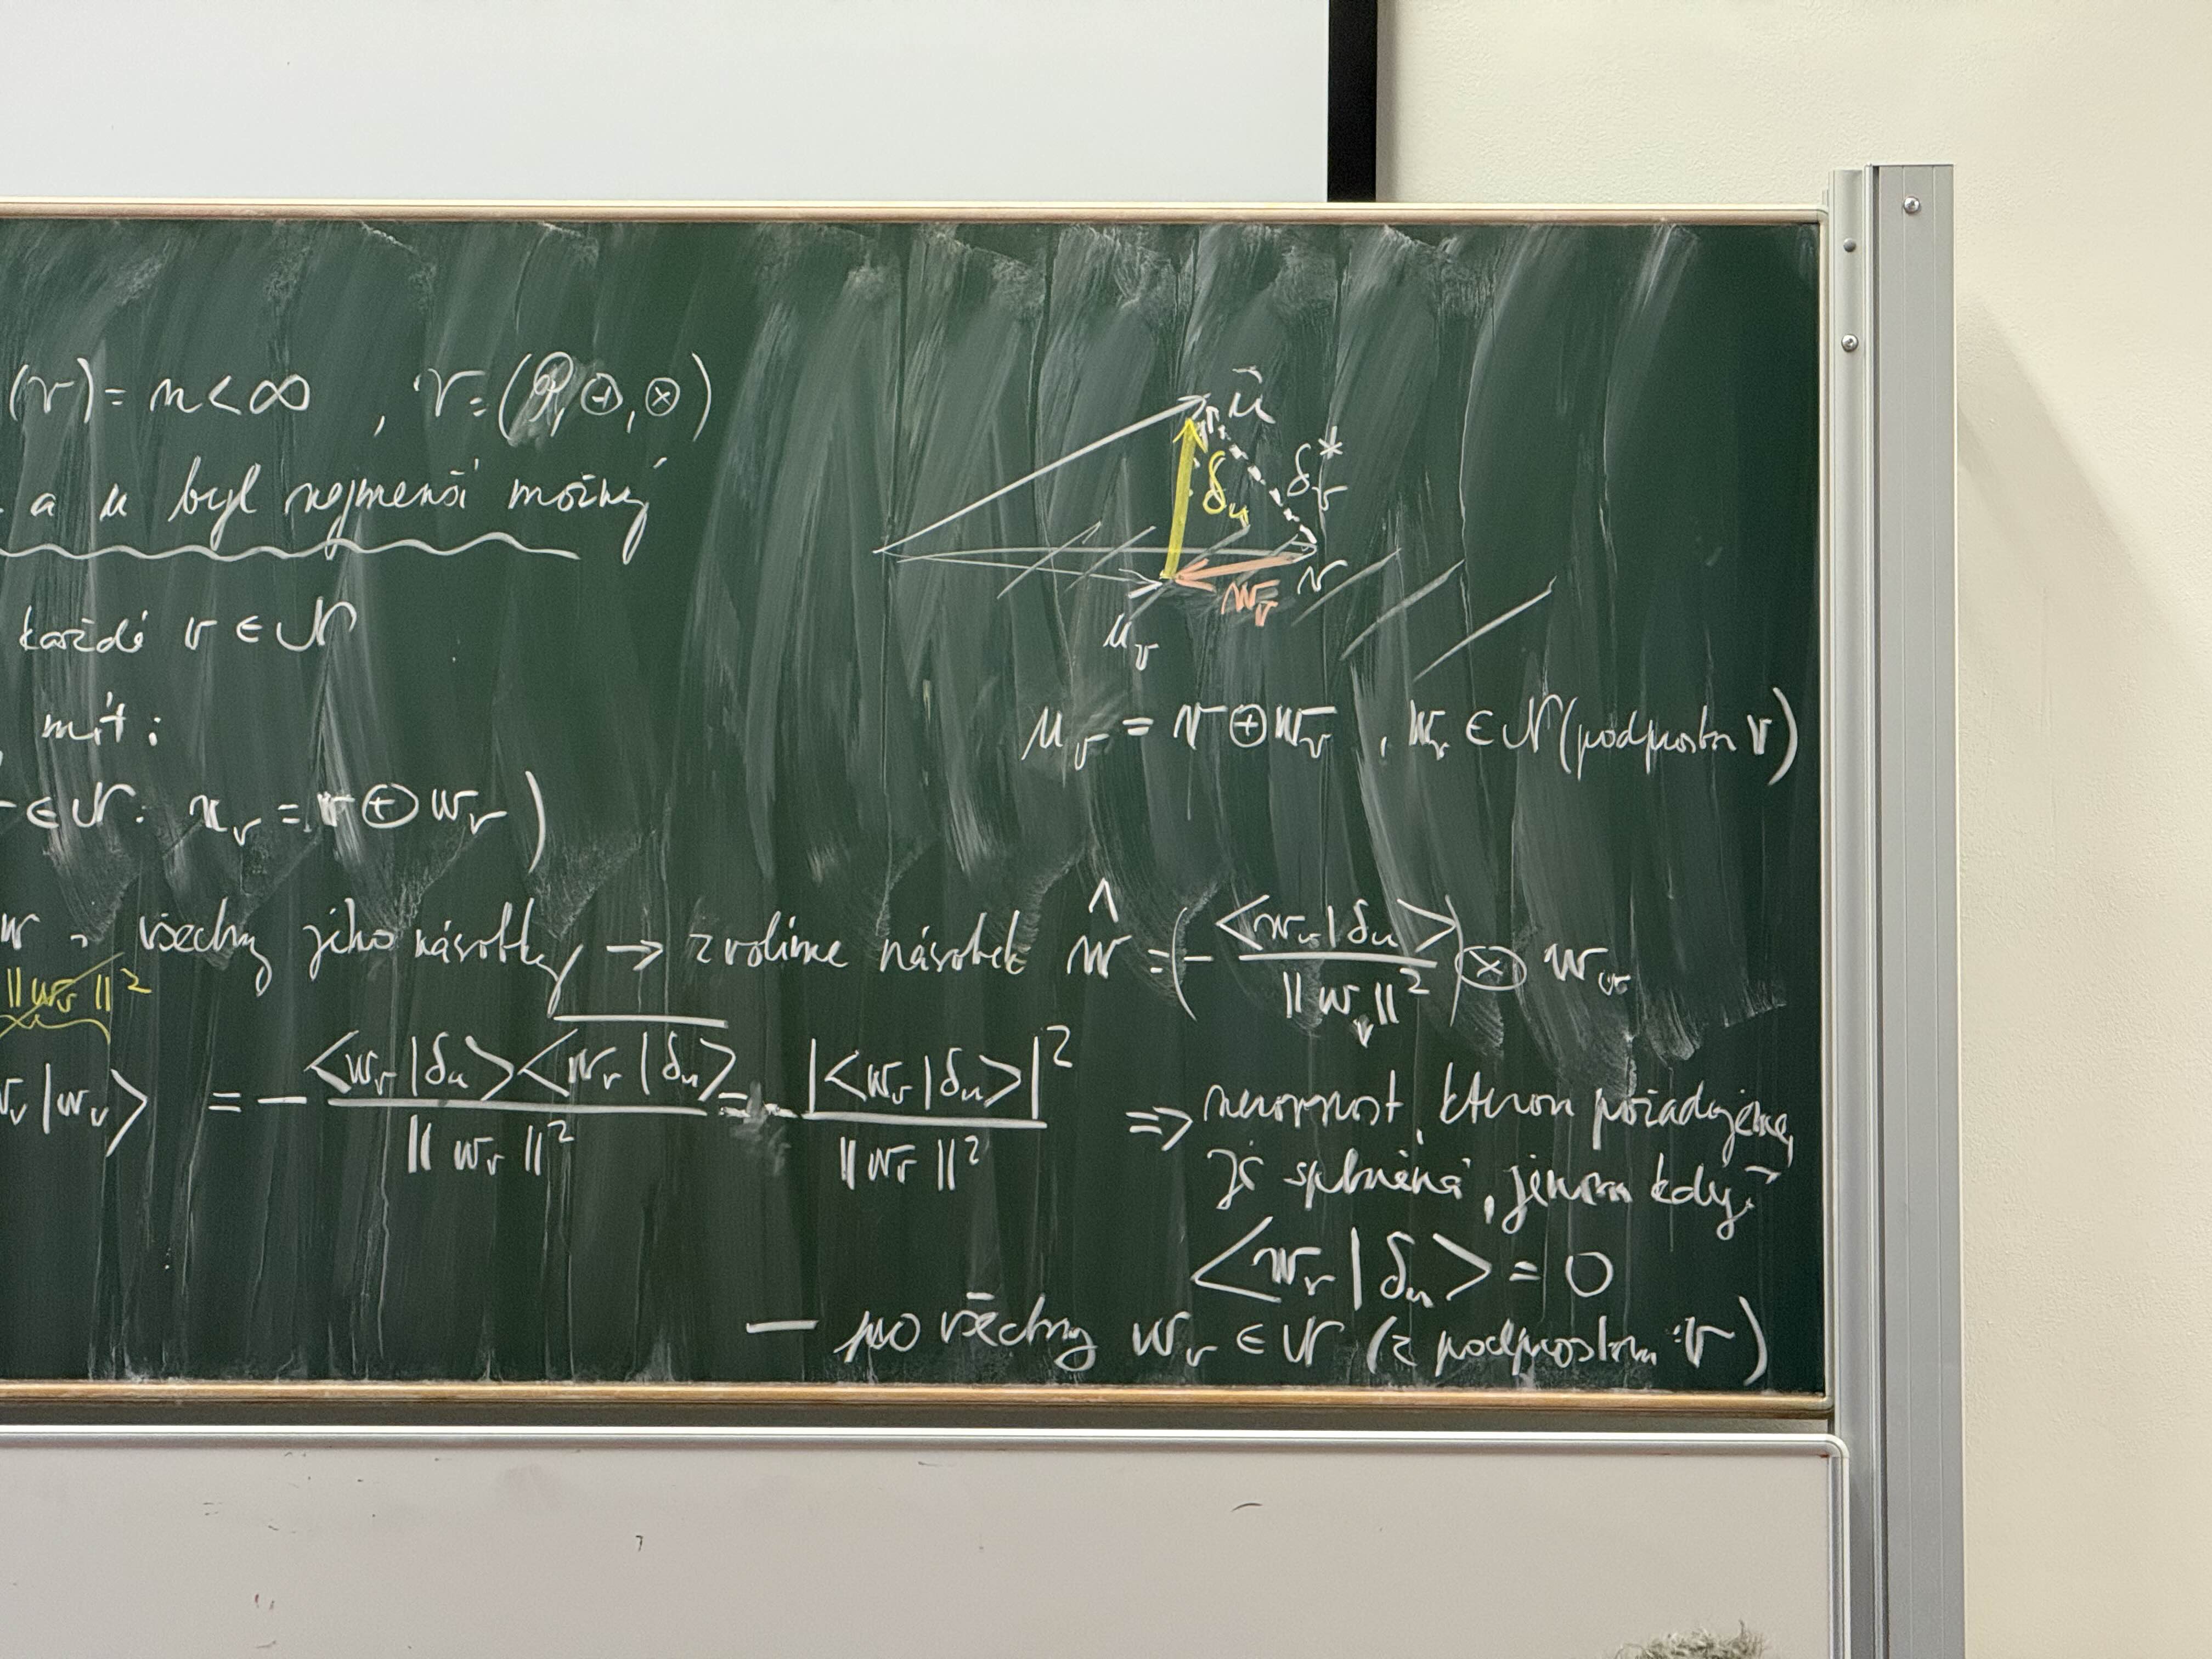 (V) = n < ∞ , V = (P, ⊕, ⊗)
a u byl nejmenší možný
každé v ∈ N
mít:
∈ N: u_v = v ⊕ w_v )
u
δ_u
δ_v*
v
w_v
u_v
u_v = v ⊕ w_v , w_v ∈ N (podprostor V)
w - všechny jeho násobky → zvolíme násobek ŵ = (- <w_v|δ_u> / ||w_v||²) ⊗ w_v
||w_v||²
|w_v> = - <w_v|δ_u><w_v|δ_u> / ||w_v||² = - |<w_v|δ_u>|² / ||w_v||²
⇒ nerovnost, kterou požadujeme,
je splněná, jenom když
<w_v|δ_u> = 0
— pro všechny w_v ∈ N (z podprostoru V)